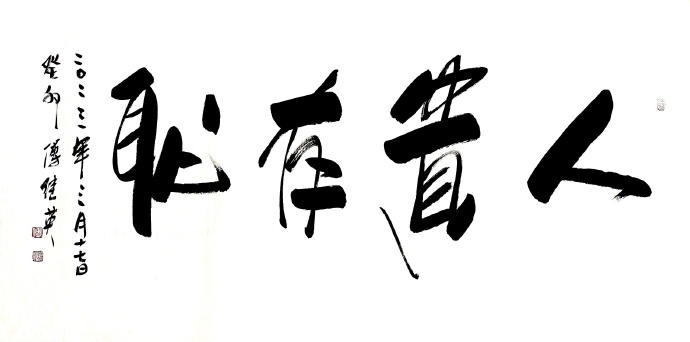 人貴有恥
二〇二三年三月十七日
癸卯 傅佳英